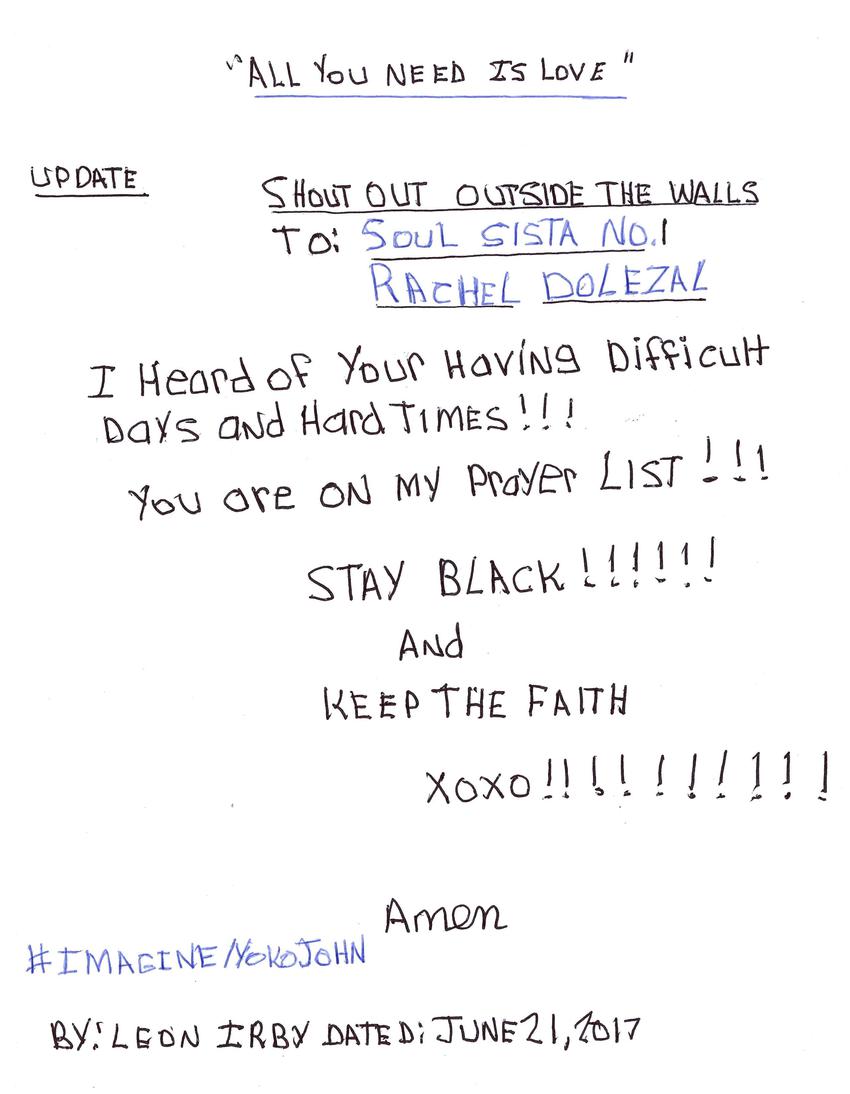 "ALL YOU NEED IS LOVE"
UPDATE
SHOUT OUT OUTSIDE THE WALLS
TO: SOUL SISTA NO.1
RACHEL DOLEZAL
I Heard of Your Having Difficult
Days and Hard TIMES!!!
You are ON MY Prayer LIST!!!
STAY BLACK!!!!!!
ANd
KEEP THE FAITH
XOXO!!!!!!!!!!
Amen
#IMAGINE/YOKOJOHN
BY: LEON IRBY DATED: JUNE 21, 2017